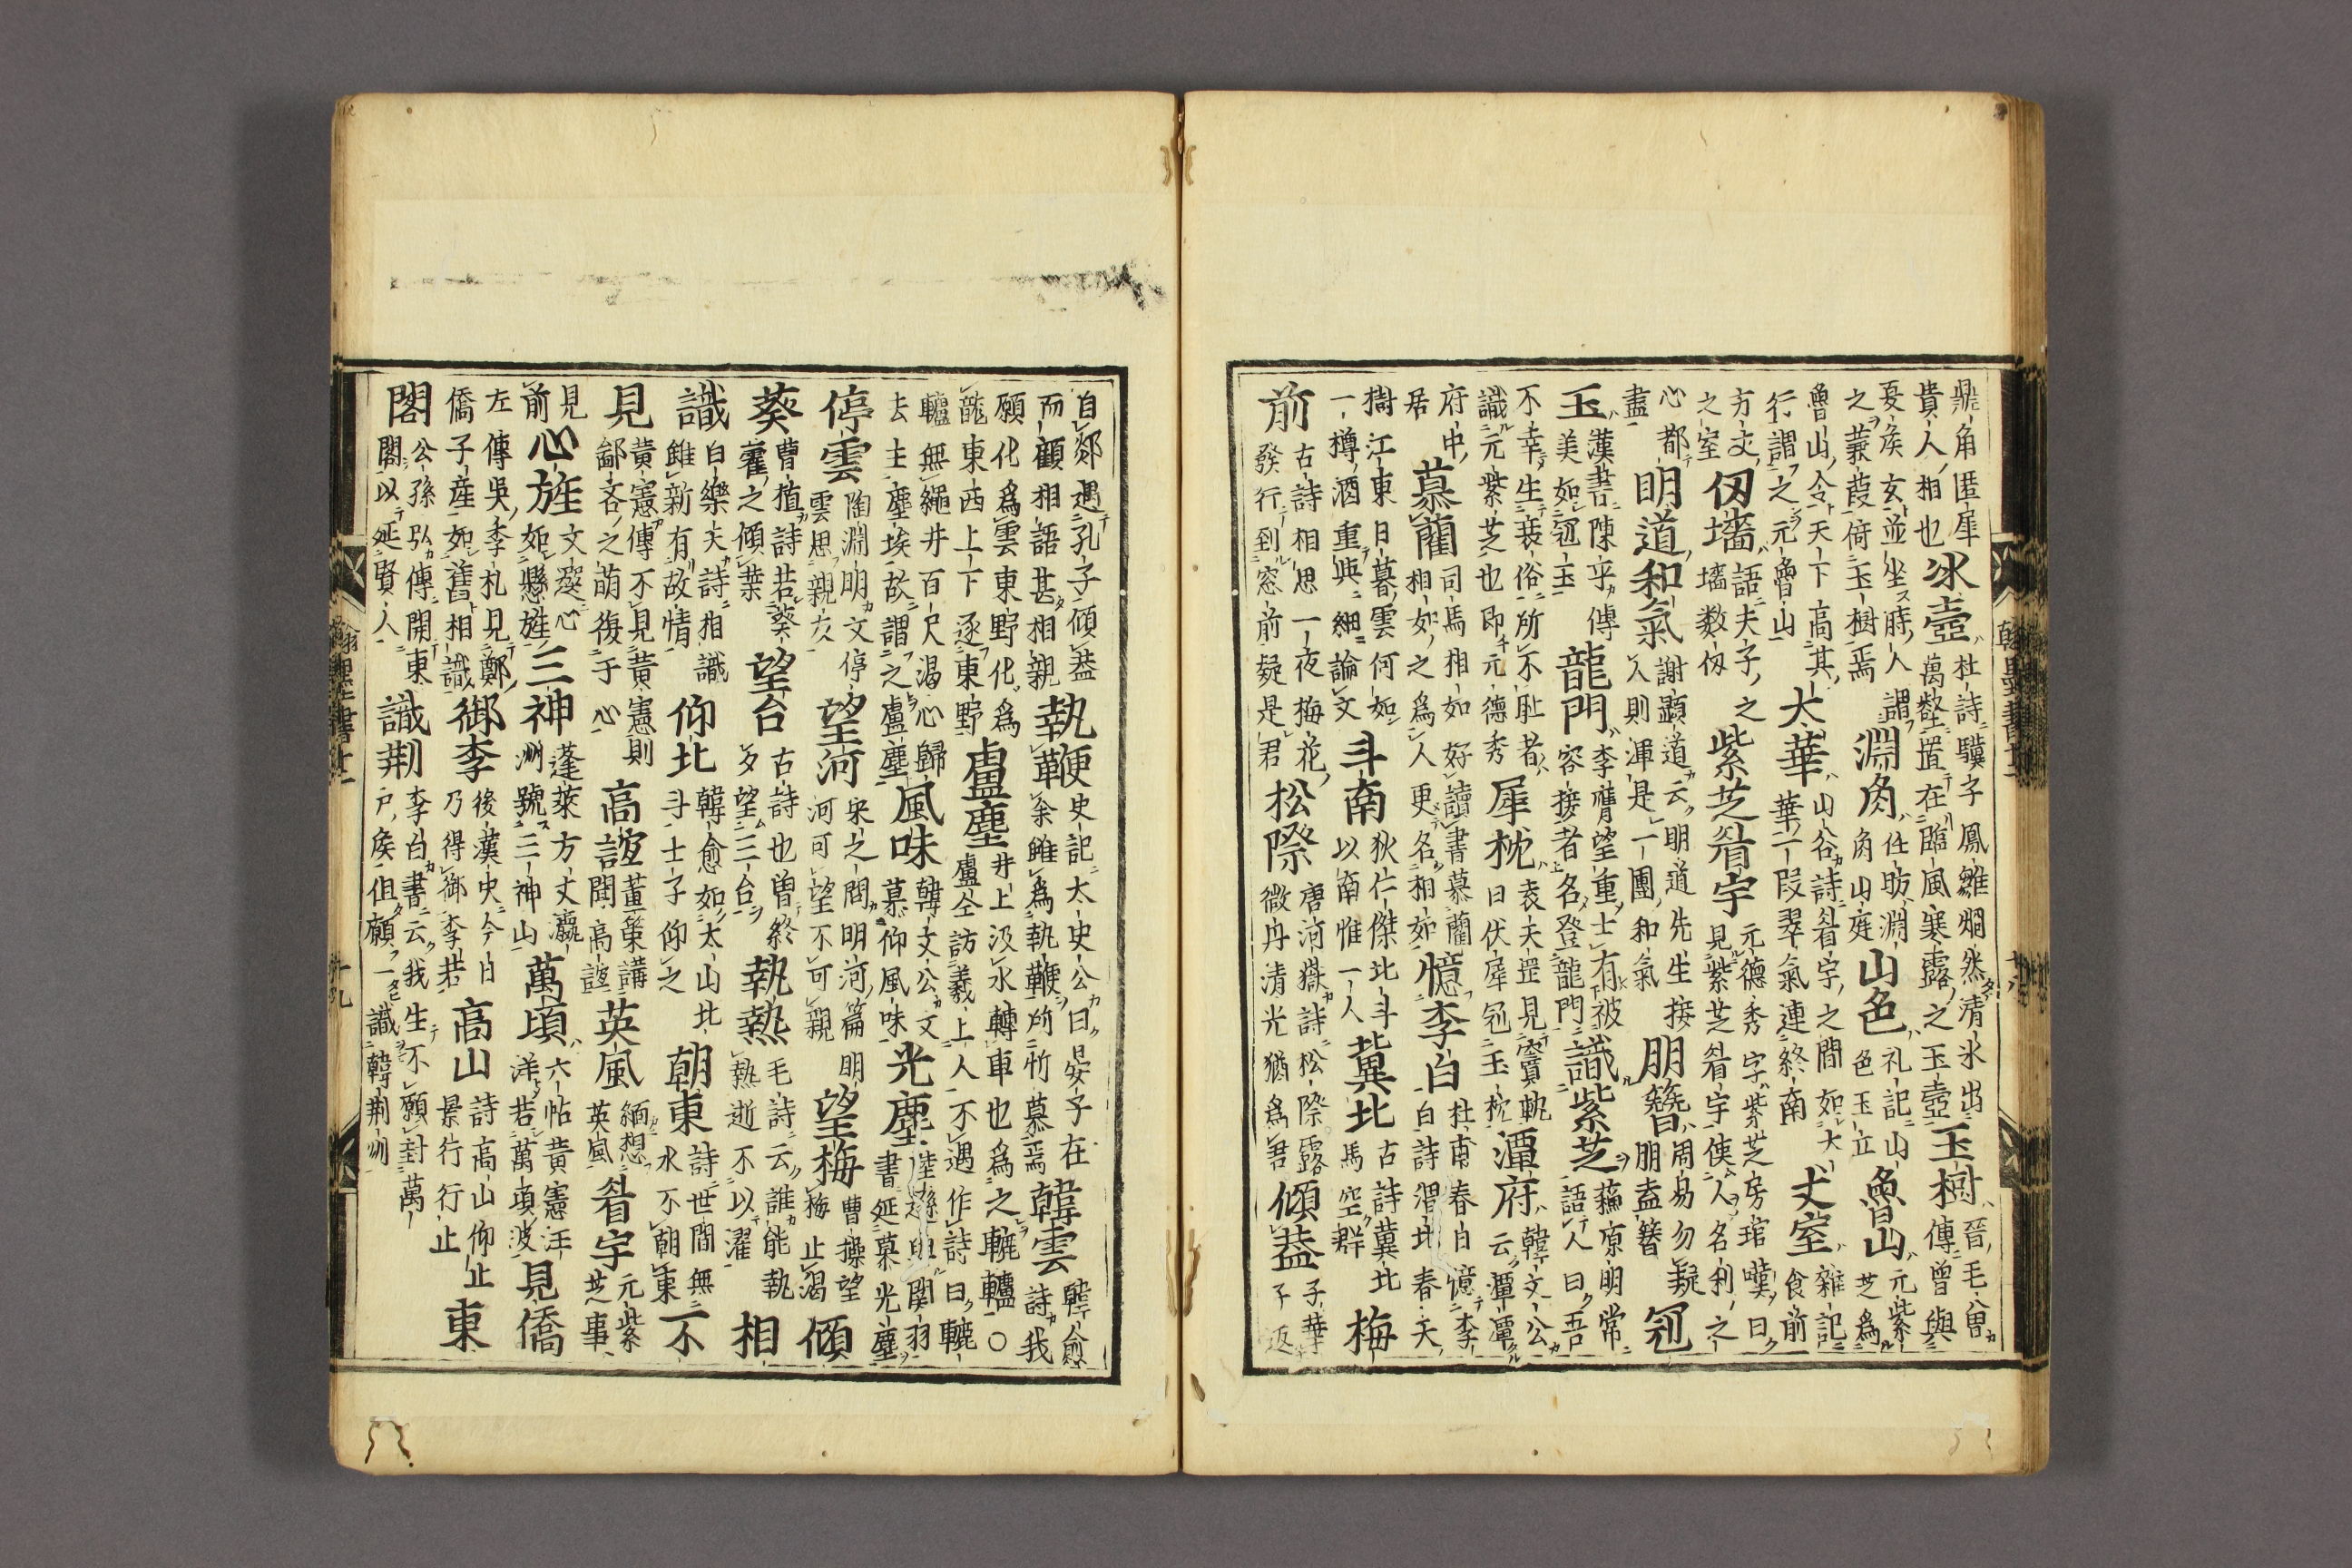 鼎角匿犀貴人相也 冰壺 杜詩驥子鳳雛烱然清氷出萬壑置在臨風寒露之玉壺 玉樹 晉毛曽傳曽與
夏侯玄並坐時人謂之蒹葭倚玉樹焉 淵角 任昉淵角山庭 山色 礼記山色玉立 魯山 元紫芝為
魯山令天下高其行謂之元魯山 太華 山谷詩眉宇之間如太華一段翠氣連終南 丈室 雜記食前
方丈之室 仭墻 語夫子之墻数仭 紫芝眉宇 元德秀字紫芝房琯嘆曰見紫芝眉宇使人名利之
心都盡 明道和氣 謝顕道云明道先生接人則渾是一團和氣 朋簪 周易勿疑朋盍簪 冠
玉 漢書陳平傳美如冠玉 龍門 李膺望重士有被容接者名登龍門 識紫芝 蘓源明常語人曰吾
不幸生衰俗所不耻者識元紫芝也即元德秀 犀枕 袁天罡見竇軌曰伏犀冠玉枕 潭府 韓文公云潭潭
府中居 慕藺 司馬相如好讀書慕藺相如之為人更名相如 憶李白 杜甫春日憶李白詩渭北春天
樹江東日暮雲何如一樽酒重與細論文 斗南 狄仁傑北斗以南惟一人 冀北 古詩冀北馬空群 梅
前 古詩相思一夜梅花發行到窓前疑是君 松際 唐河嶽詩松際露微冉清光猶為君 傾蓋 子華子返
自郯遇孔子傾蓋而顧相語甚相親 執鞭 史記太史公曰晏子在余雖為執鞭所忻慕焉 韓雲 韓愈詩我
願化為雲東野化為龍東西上下逐東野 盧塵 井上汲水轉車也為之轆轤〇盧仝訪羲上人不遇作詩曰轆
轤無繩井百尺渇心歸去主塵埃故謂之盧塵 風味 韓文公文慕仰風味 光塵 陸遜與関羽書延慕光塵
停雲 陶淵明文停雲思親友 望河 宋之問明河篇明河可望不可親 望梅 曹操望梅止渇 傾
葵 曹植詩若葵藿之傾葉 望台 古詩也曽終夕望三台 執熱 毛詩云誰能執熱逝不以濯 相
識 白樂天詩相識雖新有故情 仰北 韓愈如太山北斗士子仰之 朝東 詩世間無水不朝東 不
見 黄憲傳不見黄憲則鄙吝之萌復于心 高誼 董策講聞高誼 英風 緬想英風 眉宇 元紫芝事
見前 心旌 文選心如懸旌 三神 蓬萊方丈瀛洲號三神山 萬頃 六帖黄憲汪洋若萬頃波 見僑
左傳吳季札見鄭僑子産如舊相識 御李 後漢史今日乃得御李君 高山 詩高山仰止景行行止 東
閣 公孫弘傳開東閣以延賢人 識荆 李白書云我生不願封萬戸侯但願一識韓荆州